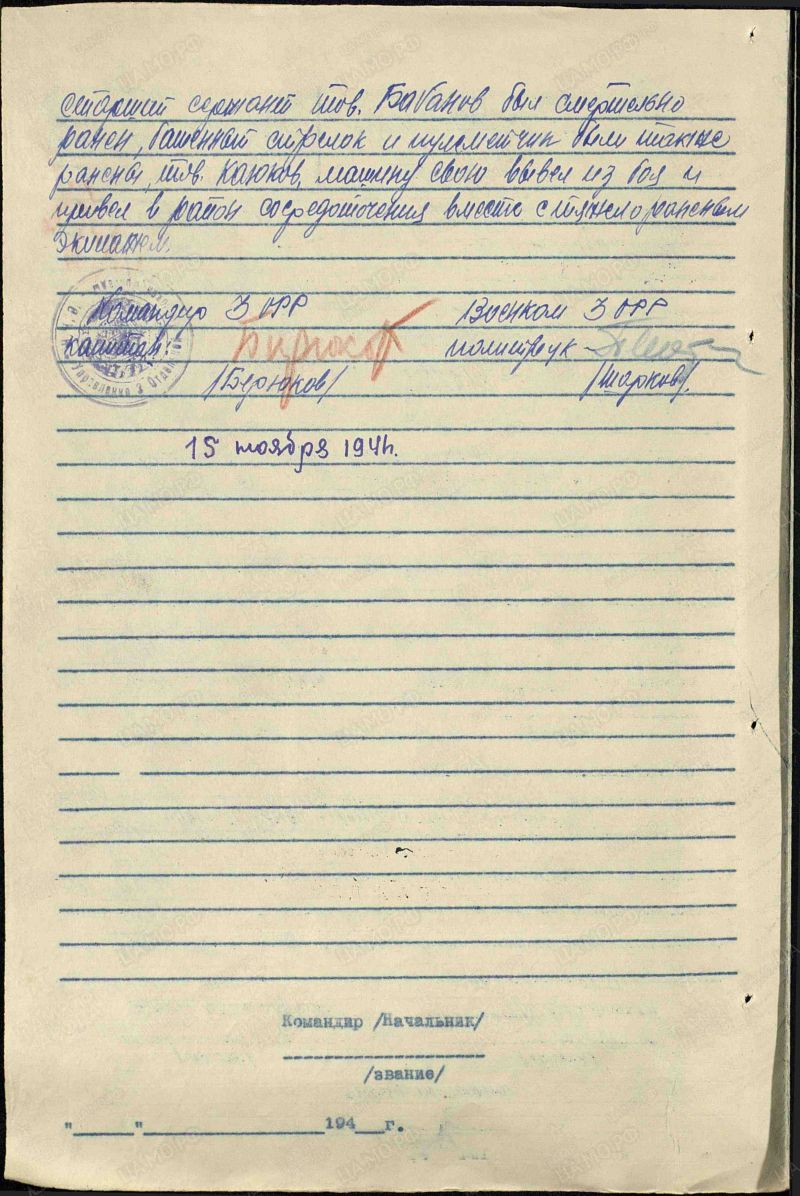 старший сержант тов. Бабанов был смертельно
ранен, башенный стрелок и пулеметчик были также
ранены, тов. Каюков, машину свою вывел из боя и
привел в район сосредоточения вместе с тяжело раненым
экипажем.
Командир 3 ОРР Военком 3 ОРР
капитан: политрук
/Бирюков/ /Шарков/.
Управление 3 Отдельной
15 ноября 1941г.
Командир /Начальник/
/звание/
"______"__________________194___г.